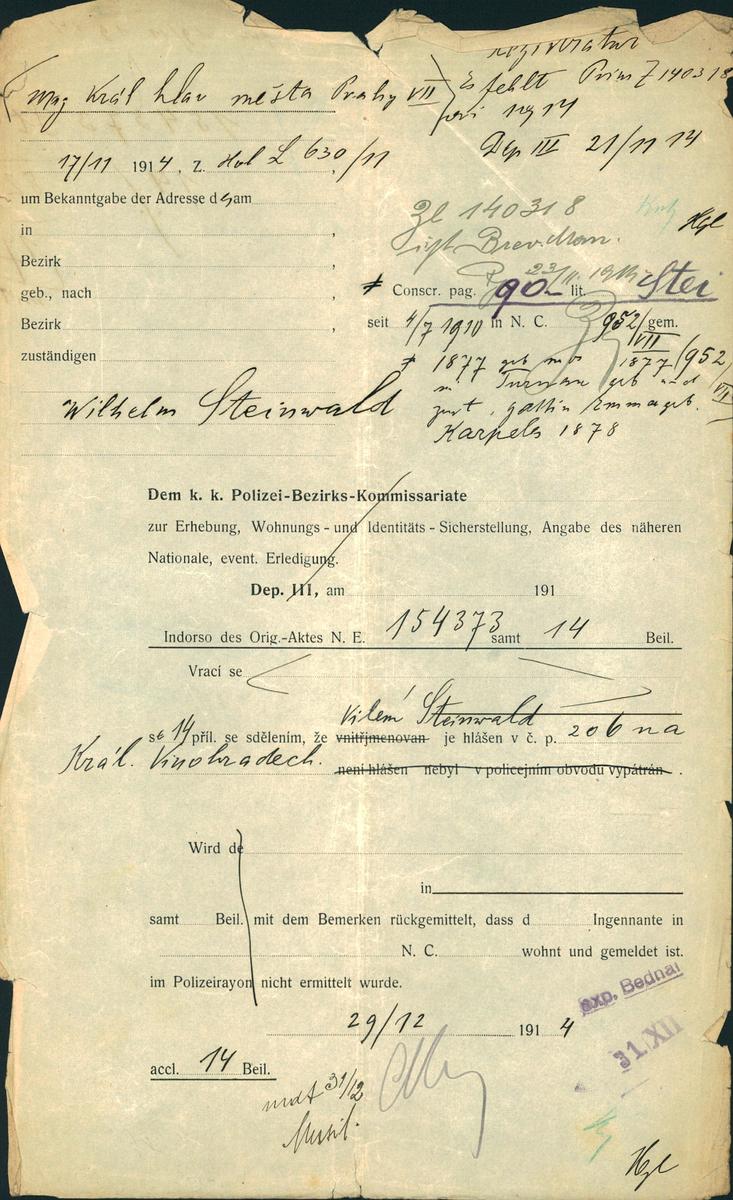 Registratur
Mag Král hlav města Prahy VII
Es fehlt Prius Z 140318
1914
17/11 1914, Z. L 630/11
Dep III 21/11 14
um Bekanntgabe der Adresse d am
Zl 140318
in ,
Hgl
Bezirk
23/11
geb., nach , Conscr. pag. 90 lit. Stei
Bezirk , seit 4/7 1910 in N. C. 952/VII gem.
zuständigen
1877 geb 1877 /952/VII
geb und
Wilhelm Steinwald
zust. Gattin Emma geb.
Karpeles 1878
Dem k. k. Polizei-Bezirks-Kommissariate
zur Erhebung, Wohnungs - und Identitäts - Sicherstellung, Angabe des näheren
Nationale, event. Erledigung.
Dep. III, am 191
Indorso des Orig.-Aktes N. E. 154373 samt 14 Beil.
Vrací se
Vilém Steinwald
se 14 příl. se sdělením, že vnitřjmenovan je hlášen v č. p. 206 na
Král. Vinohradech. není hlášen nebyl v policejním obvodu vypátrán .
Wird de
in
samt Beil. mit dem Bemerken rückgemittelt, dass d Ingennante in
N. C. wohnt und gemeldet ist.
im Polizeirayon nicht ermittelt wurde.
exp. Bednař
29/12 1914
31. XII
accl. 14 Beil.
31/12
Musil.
Hgl